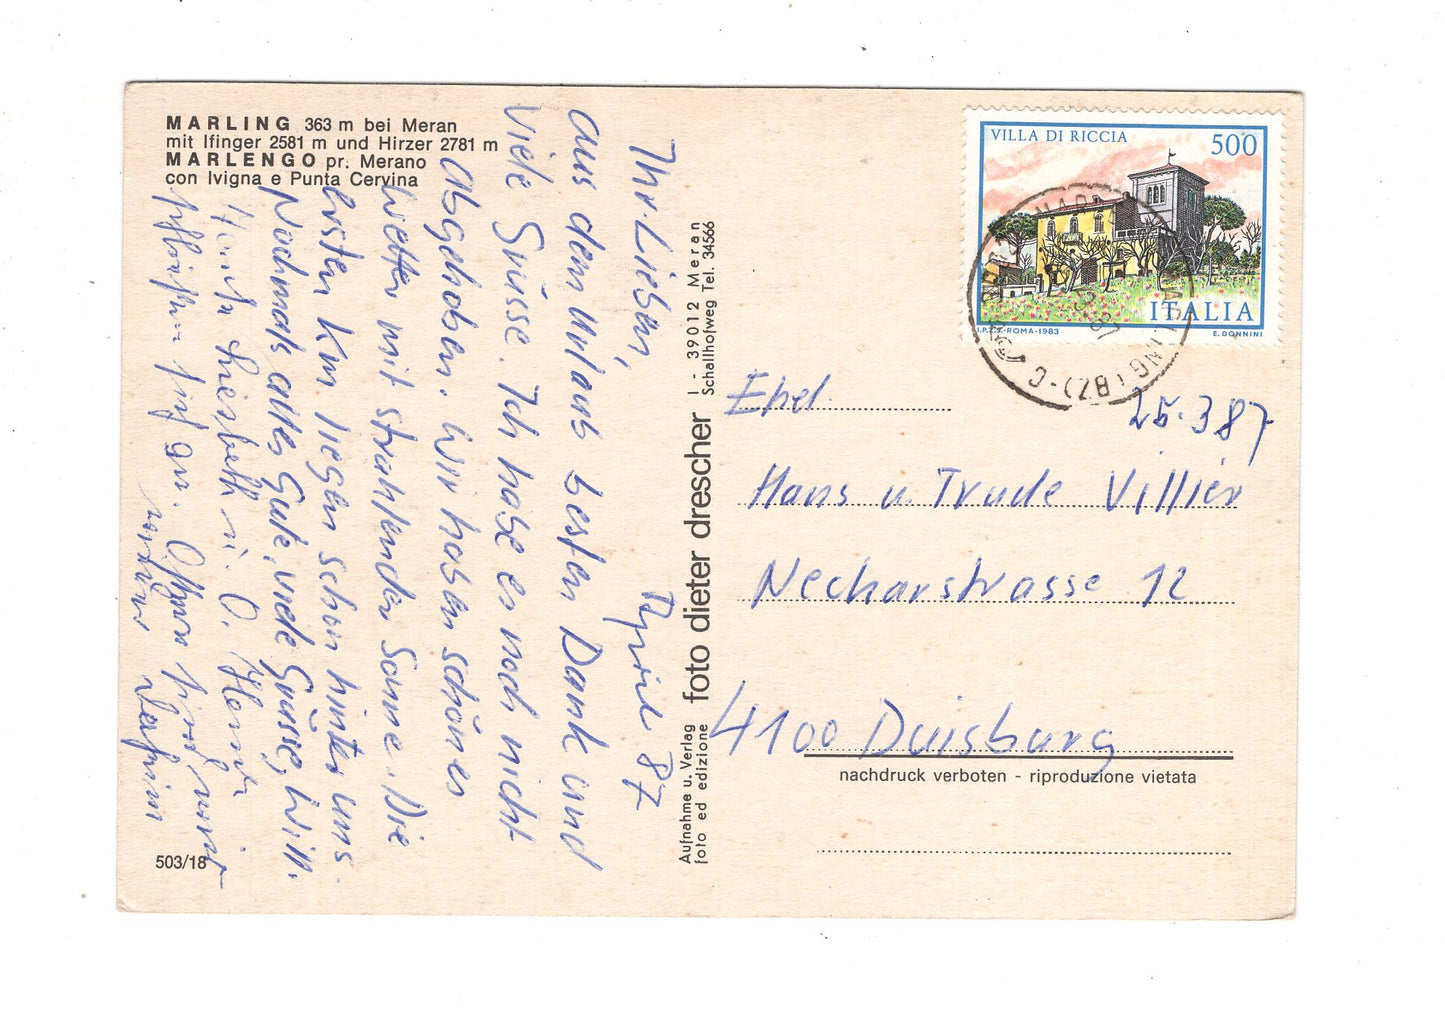 MARLING 363 m bei Meran
mit Ifinger 2581 m und Hirzer 2781 m
MARLENGO pr. Merano
con Ivigna e Punta Cervina
Ihr Lieben,
April 87
aus dem Urlaub besten Dank und
viele Grüsse. Ich habe es noch nicht
abgehoben. Wir haben schönes
Wetter mit strahlender Sonne. Die
ersten Km liegen schon hinter uns.
Nochmals alles Gute, viele Grüsse, Will.
Liesbeth
503/18
Aufnahme u. Verlag
foto ed edizione
foto dieter drescher
I - 39012 Meran
Schallhofweg Tel. 34566
VILLA DI RICCIA
500
ITALIA
I.P.Z.S.-ROMA-1983
E. DONNINI
25.3.87
Ehel.
Hans u. Trude Villier
Neckarstrasse 12
4100 Duisburg
nachdruck verboten - riproduzione vietata